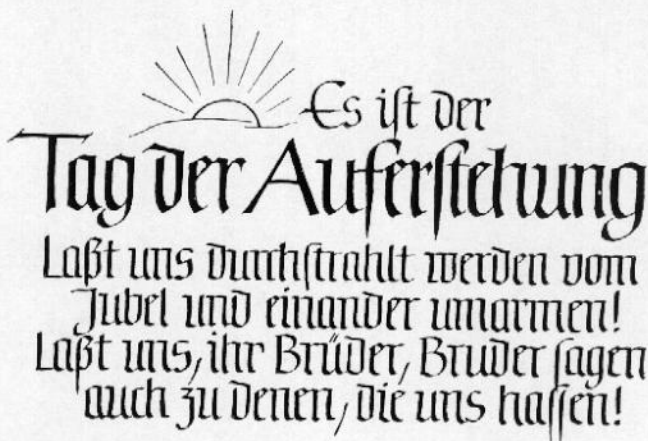 Es ist der
Tag der Auferstehung
Laßt uns durchstrahlt werden vom
Jubel und einander umarmen!
Laßt uns, ihr Brüder, Bruder sagen
auch zu denen, die uns hassen!